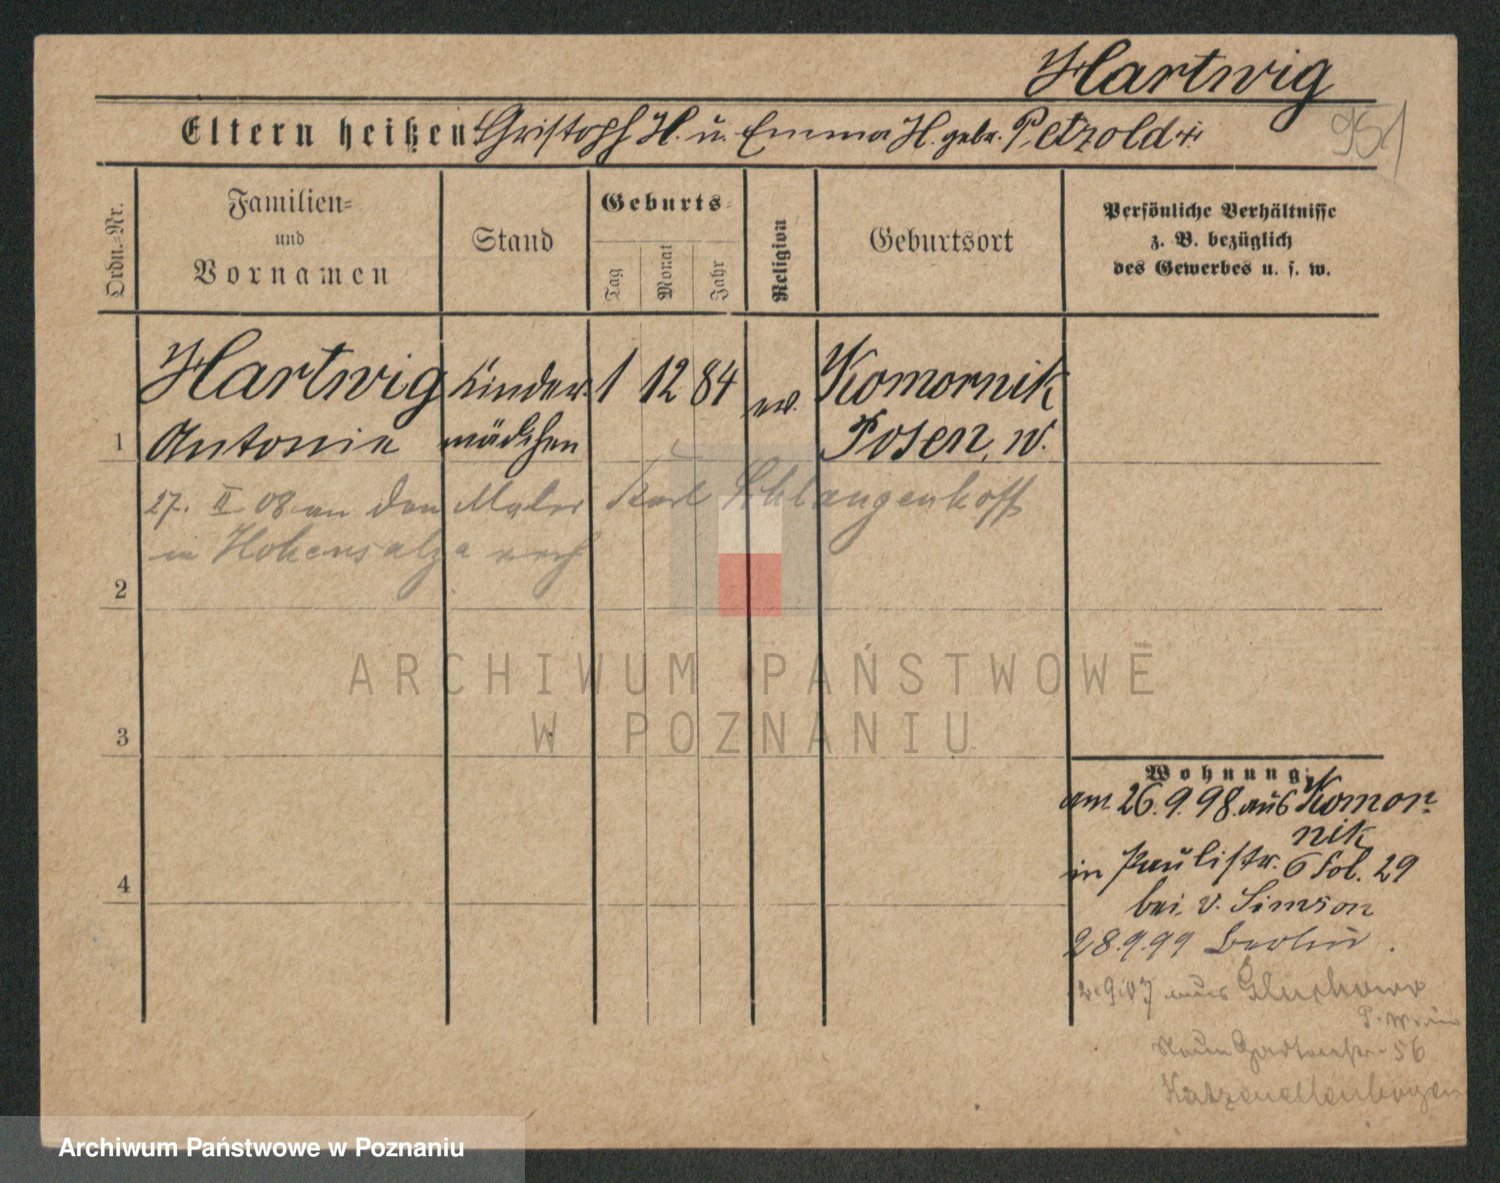 Hartwig
951
Eltern heißen Christoph H. u. Emma H. geb. Petzold
Ordn.-Nr.
Familien-
und
Vornamen
Stand
Geburts-
Tag
Monat
Jahr
Religion
Geburtsort
Persönliche Verhältnisse
z. B. bezüglich
des Gewerbes u. s. w.
Hartwig Kinder- 1 12 84 ev. Komornik
1 Antonie mädchen Posen, W.
27. II 08 an den Maler Karl Schlangenhoff
in Hohensalza verh
2
ARCHIWUM PAŃSTWOWE
W POZNANIU
3
Wohnung:
am 26.9.98. aus Komor-
nik
in Paulistr. 6 fol. 29
4
bei v. Simson
28.9.99 Berlin.
2.9.07 aus Gluchowo
P. W. in
Neue Gartenstr. 56
Katzenellenbogen
Archiwum Państwowe w Poznaniu